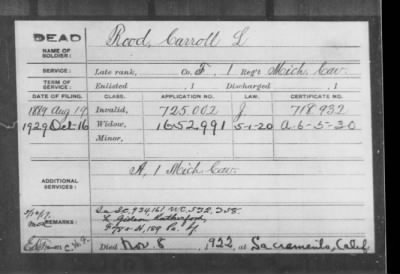 DEAD
NAME OF SOLDIER: Rood, Carroll L
SERVICE: Late rank, Co. F, 1 Reg't Mich. Cav.
TERM OF SERVICE: Enlisted , 1 Discharged , 1
DATE OF FILING. CLASS. APPLICATION NO. LAW. CERTIFICATE NO.
1889 Aug 19 Invalid, 725.002 J 718.932
1929 Oct-16 Widow, 1652991 5-1-20 A-6-5-30
Minor,
ADDITIONAL SERVICES: A, 1 Mich Cav.
934,161 W.C. 532,258
REMARKS: Gideon Rutherford,
H, 189
Died Nov. 8, 1922, at Sacramento, Calif